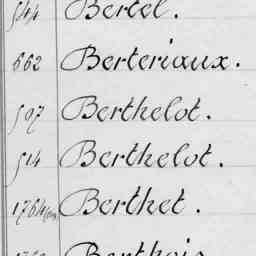 544 Bertel.
662 Berteriaux.
507 Berthelot.
514 Berthelot.
1764 Berthet.
Berthois